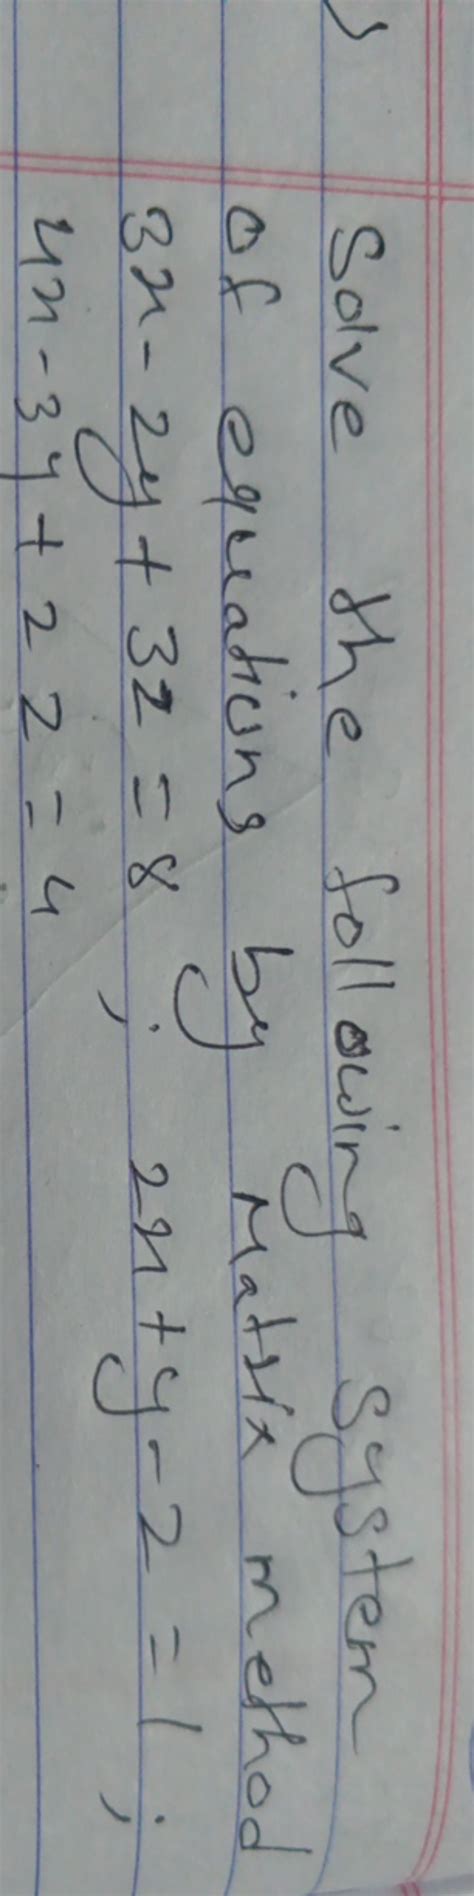 Solve the following system
of equations by Matrix method
3x - 2y + 3z = 8 ; 2x + y - z = 1 ;
4x - 3y + 2z = 4